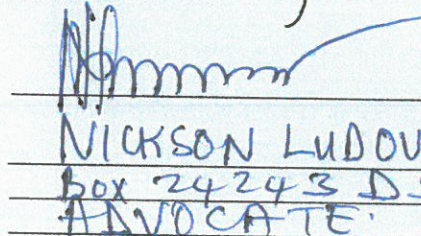 NICKSON LUDOV
Box 24243 DS
ADVOCATE.